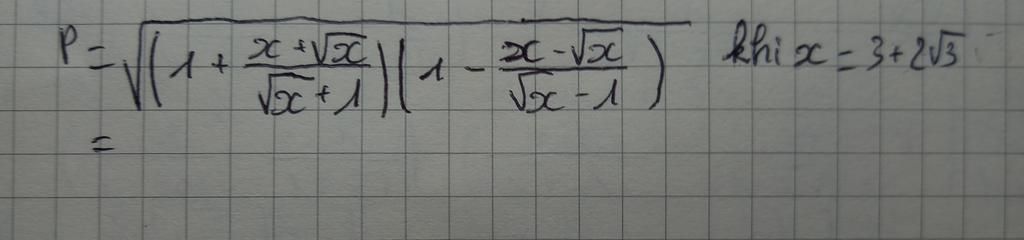 P = √((1 + (x + √x)/(√x + 1))(1 - (x - √x)/(√x - 1))) khi x = 3 + 2√3
=